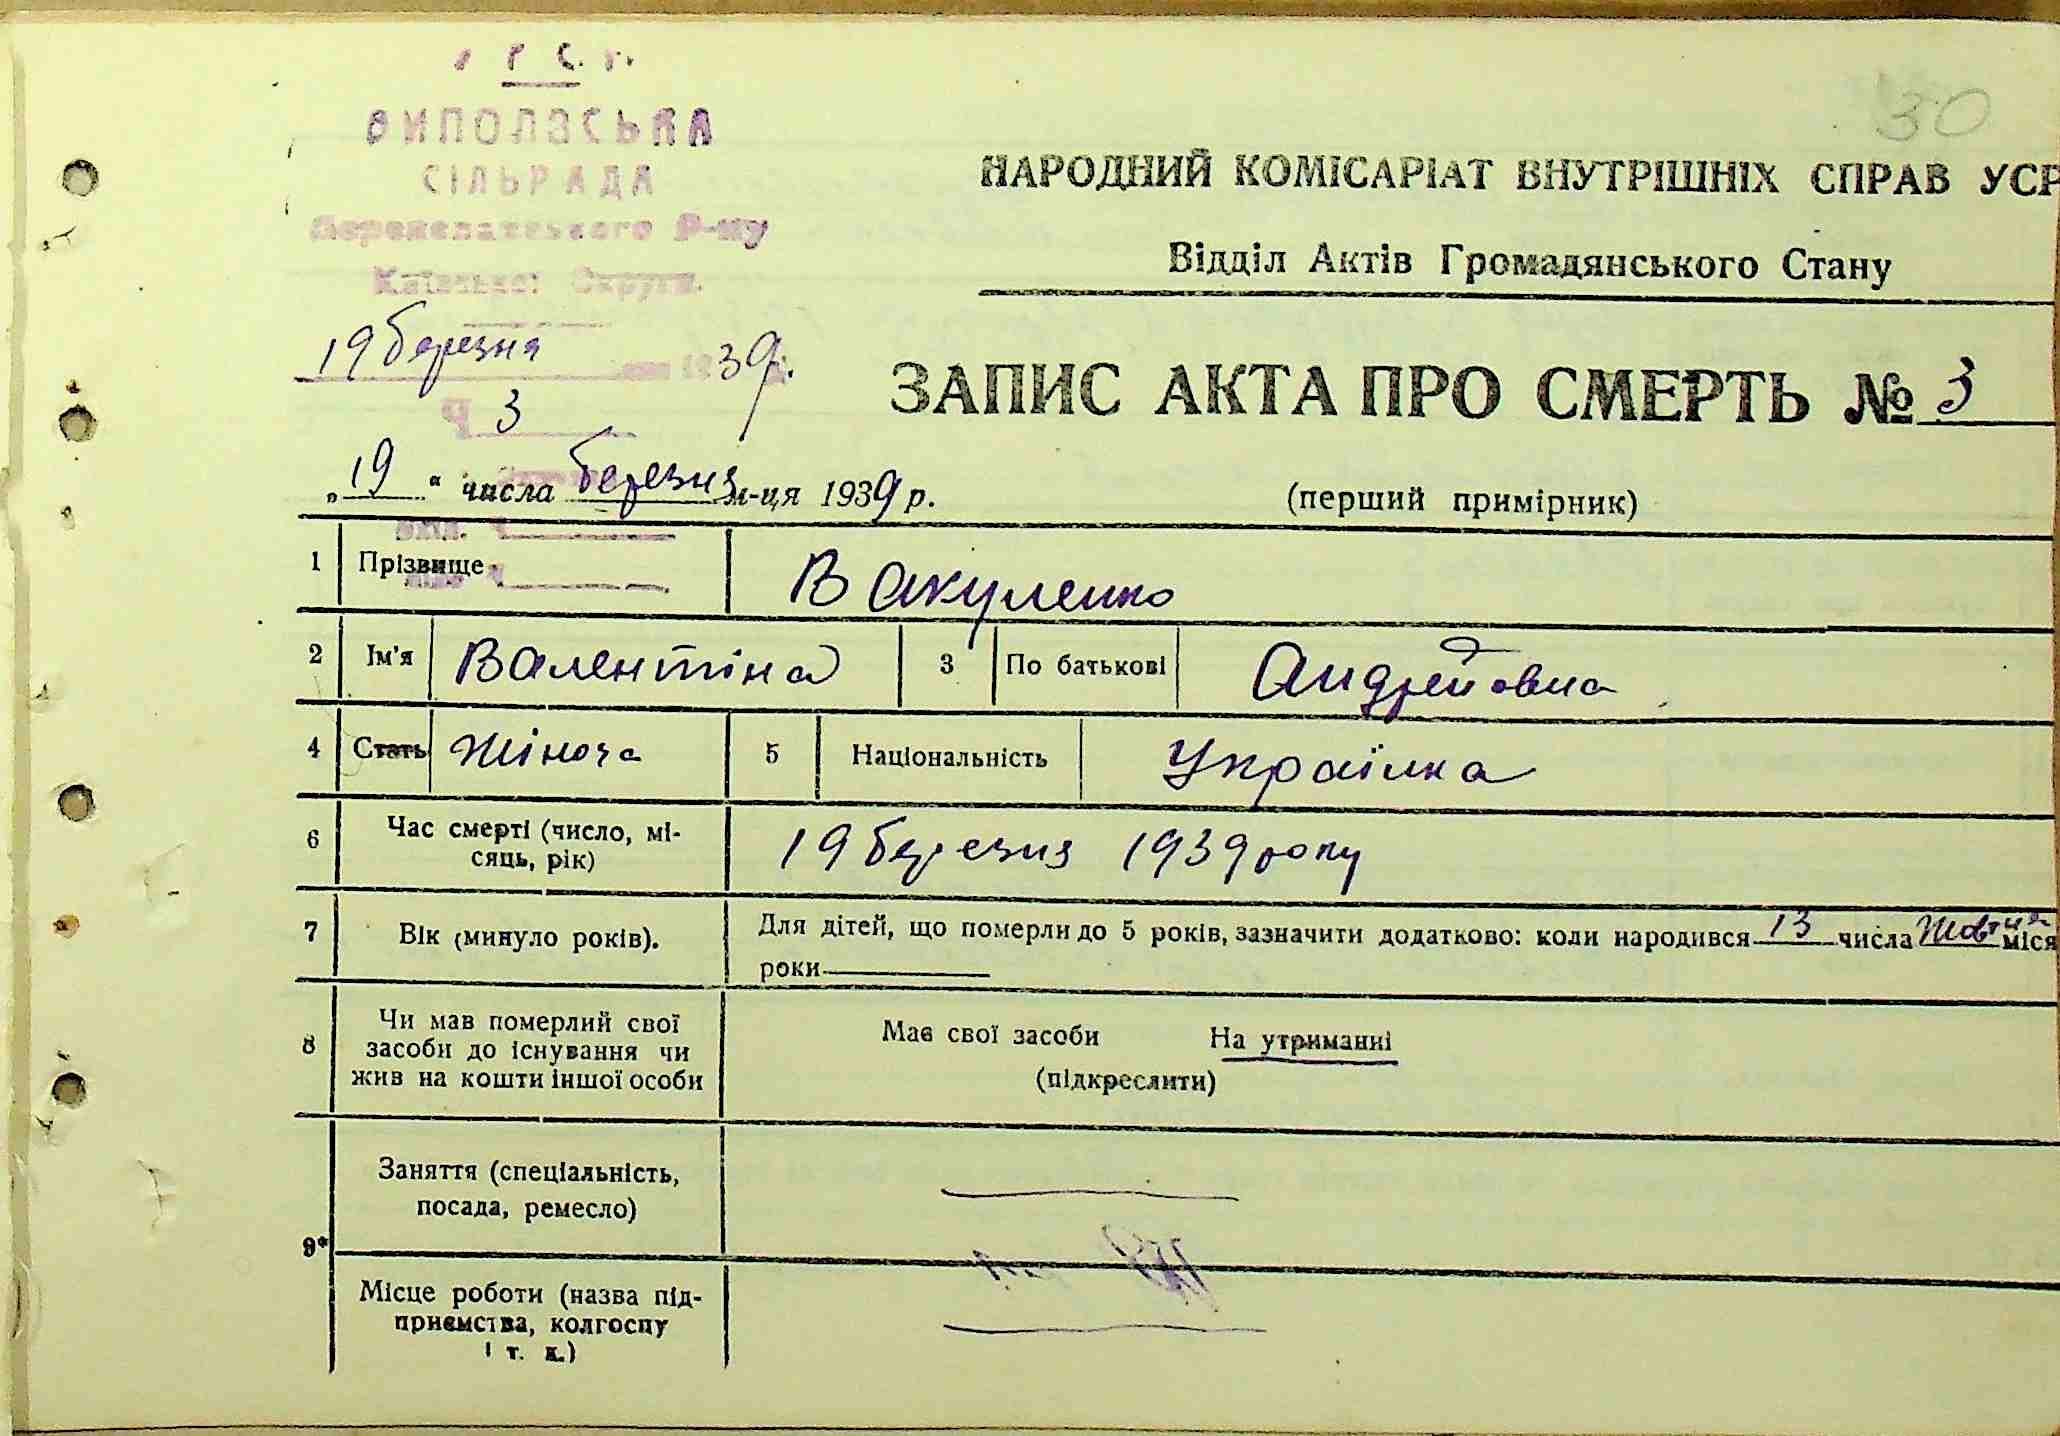 30
ВИПОЛЗСЬКА
СІЛЬРАДА
Переяславського Р-ну
Київської Округи.
19 березня 1939 р.
Ч 3
НАРОДНИЙ КОМІСАРІАТ ВНУТРІШНІХ СПРАВ УСР
Відділ Актів Громадянського Стану
ЗАПИС АКТА ПРО СМЕРТЬ № 3
„19“ числа березня м-ця 1939 р.
(перший примірник)
вхід. Ч
1 Прізвище Вакуленко
2 Ім'я Валентіна 3 По батькові Андрейовна
4 Стать Жіноча 5 Національність Українка
6 Час смерті (число, мі-
сяць, рік) 19 березня 1939 року
7 Вік (минуло років). Для дітей, що померли до 5 років, зазначити додатково: коли народився 13 числа Жовтня міся
роки
8 Чи мав померлий свої
засоби до існування чи
жив на кошти іншої особи
Має свої засоби На утриманні
(підкреслити)
9* Заняття (спеціальність,
посада, ремесло)
Місце роботи (назва під-
приємства, колгоспу
і т. д.)